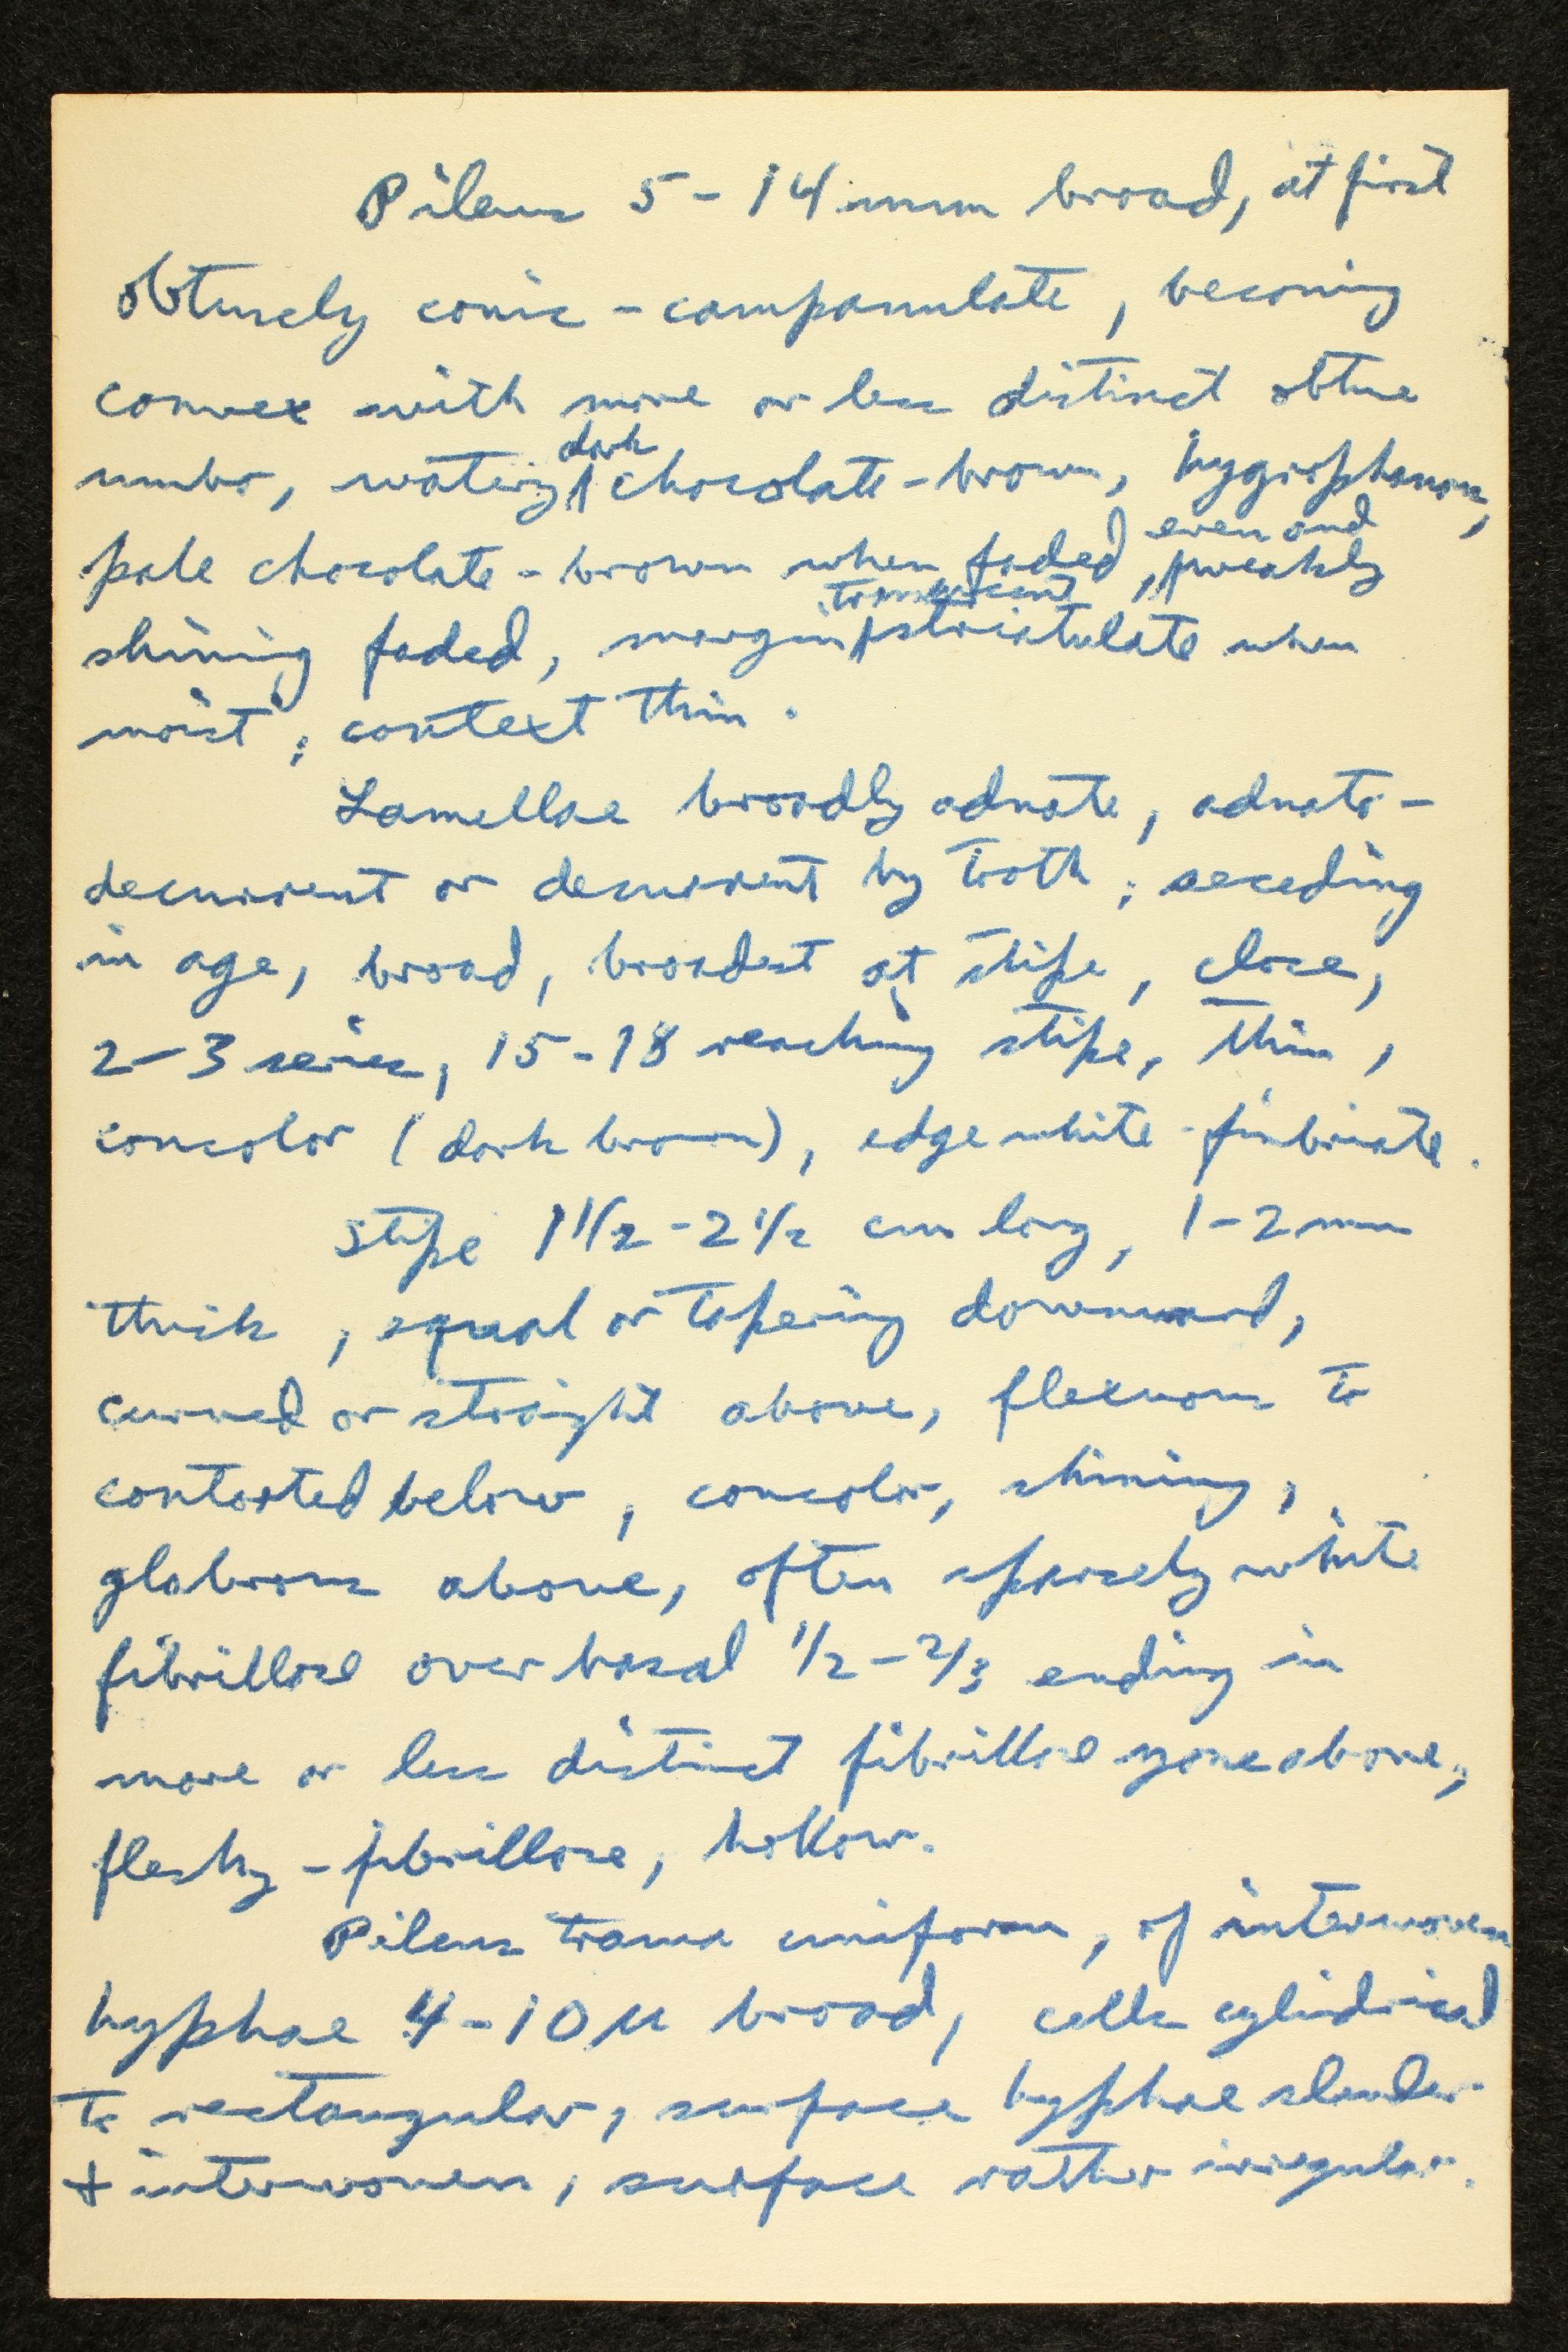 Pileus 5-14 mm broad, at first
obtusely conic-campanulate, becoming
convex with more or less distinct obtuse
umbo, watery dark chocolate-brown, hygrophanous,
pale chocolate-brown when faded, even and weakly
shining faded, margin translucent striatulate when
moist; context thin.
Lamellae broadly adnate, adnato-
decurrent or decurrent by tooth; seceding
in age, broad, broadest at stipe, close,
2-3 series, 15-18 reaching stipe, thin,
concolor (dark brown), edge white-fimbriate.
Stipe 1 1/2 - 2 1/2 cm long, 1-2 mm
thick, equal or tapering downward,
curved or straight above, flexuous to
contorted below, concolor, shining,
glabrous above, often sparsely white
fibrillose over basal 1/2 - 2/3 ending in
more or less distinct fibrillose zone above,
fleshy-fibrillose, hollow.
Pileus trama uniform, of interwoven
hyphae 4-10 µ broad, cells cylindrical
to rectangular, surface hyphae slender
+ interwoven, surface rather irregular.